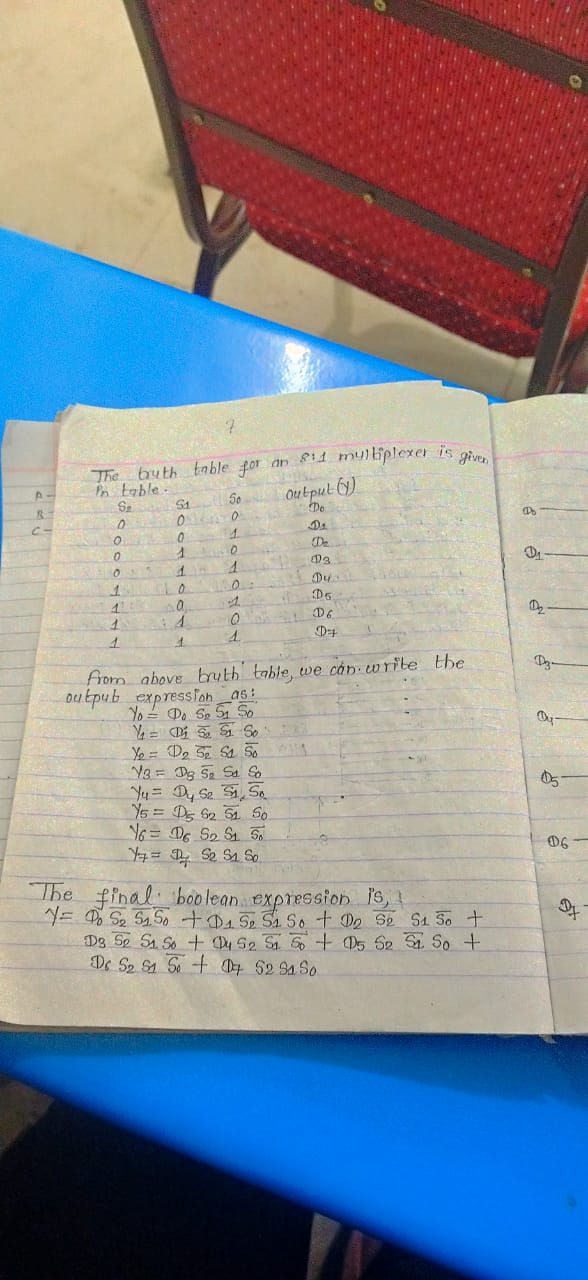 7
The truth table for an 8:1 multiplexer is given
in table.
S2 S1 S0 output (Y)
0 0 0 D0
0 0 1 D1
0 1 0 D2
0 1 1 D3
1 0 0 D4
1 0 1 D5
1 1 0 D6
1 1 1 D7
From above truth table, we can write the
output expression as:
Y0 = D0 S̅2 S̅1 S̅0
Y1 = D1 S̅2 S̅1 S0
Y2 = D2 S̅2 S1 S̅0
Y3 = D3 S̅2 S1 S0
Y4 = D4 S2 S̅1 S̅0
Y5 = D5 S2 S̅1 S0
Y6 = D6 S2 S1 S̅0
Y7 = D7 S2 S1 S0
The final boolean expression is,
Y = D0 S̅2 S̅1 S̅0 + D1 S̅2 S̅1 S0 + D2 S̅2 S1 S̅0 +
D3 S̅2 S1 S0 + D4 S2 S̅1 S̅0 + D5 S2 S̅1 S0 +
D6 S2 S1 S̅0 + D7 S2 S1 S0
A
B
C
D0
D1
D2
D3
D4
D5
D6
D7